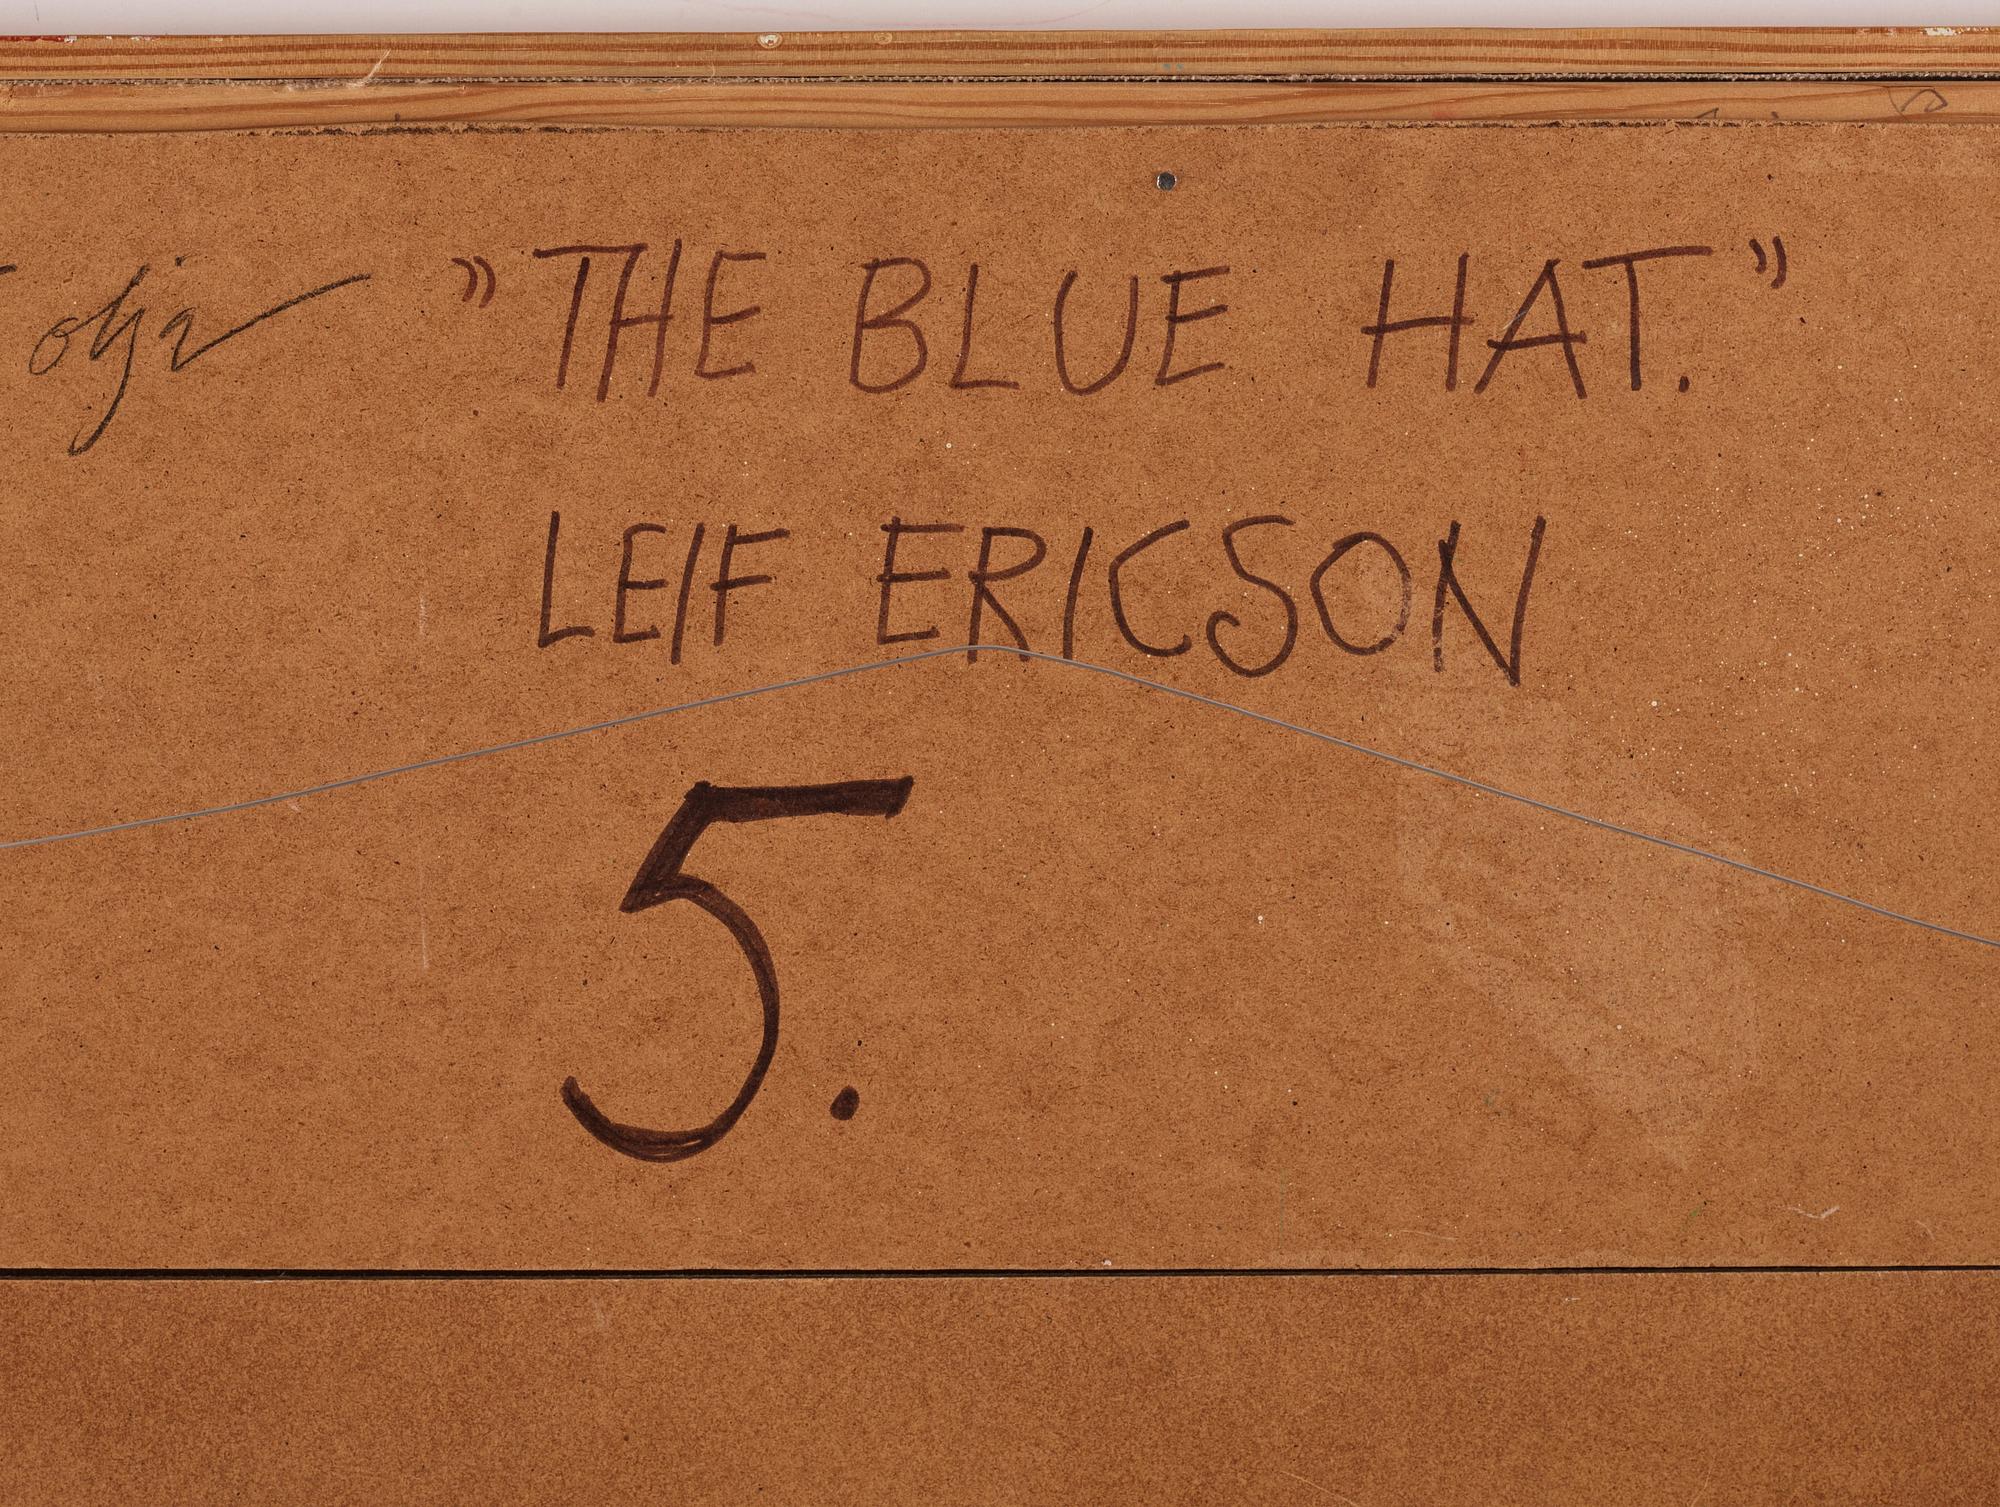 olja ”THE BLUE HAT.”
LEIF ERICSON
5.